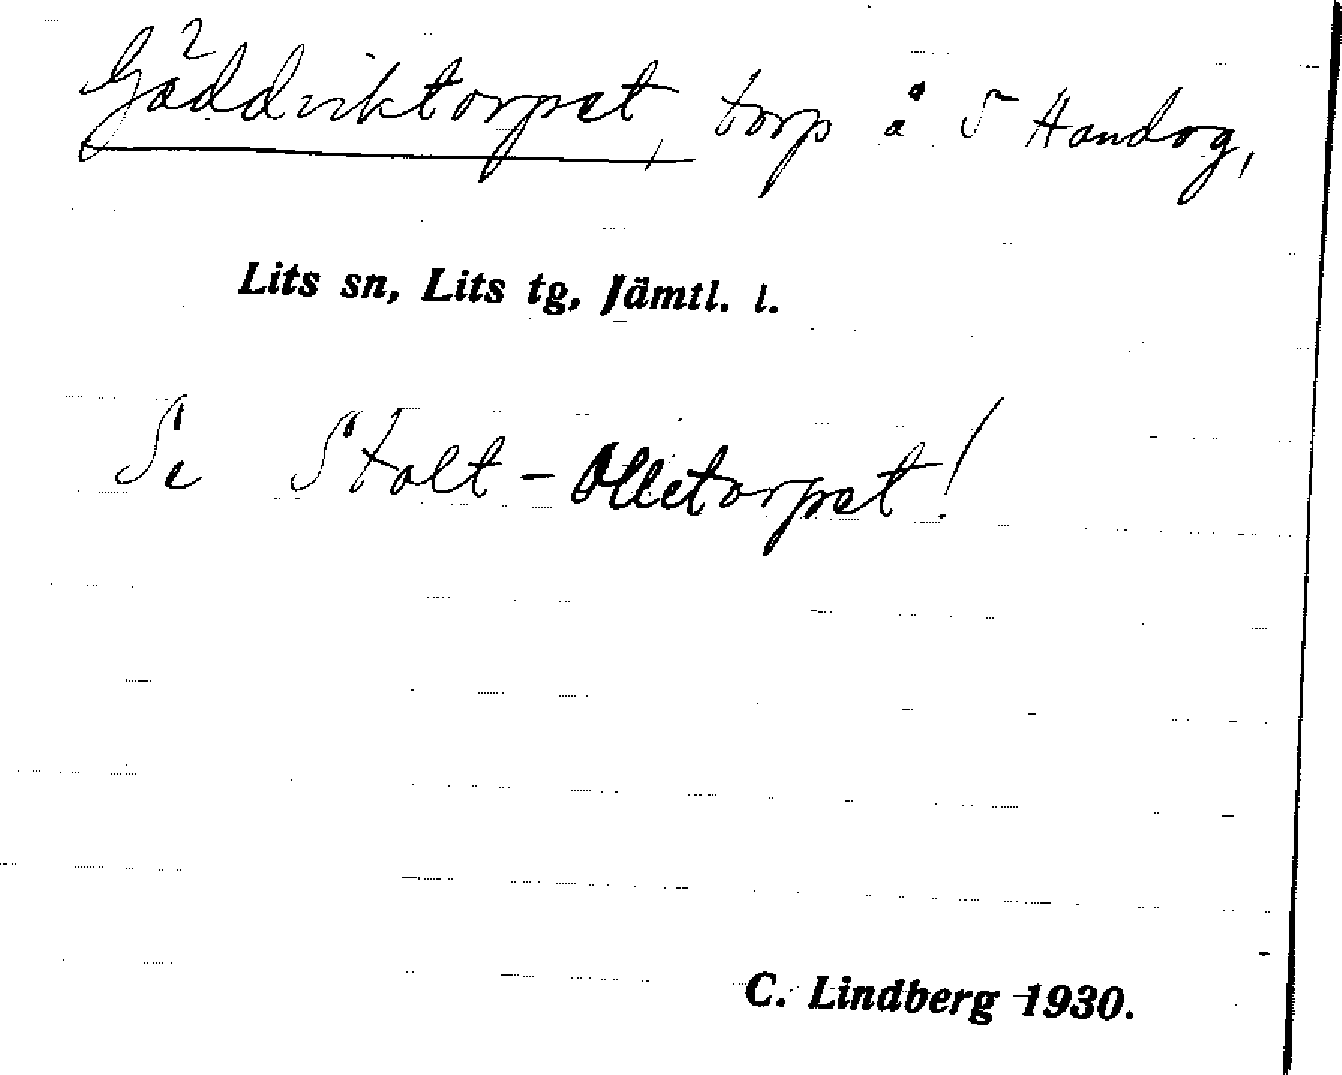 Gäddviktorpet, torp å 5 Handog,
Lits sn, Lits tg, Jämtl. l.
Se Stolt-Olletorpet!
C. Lindberg 1930.